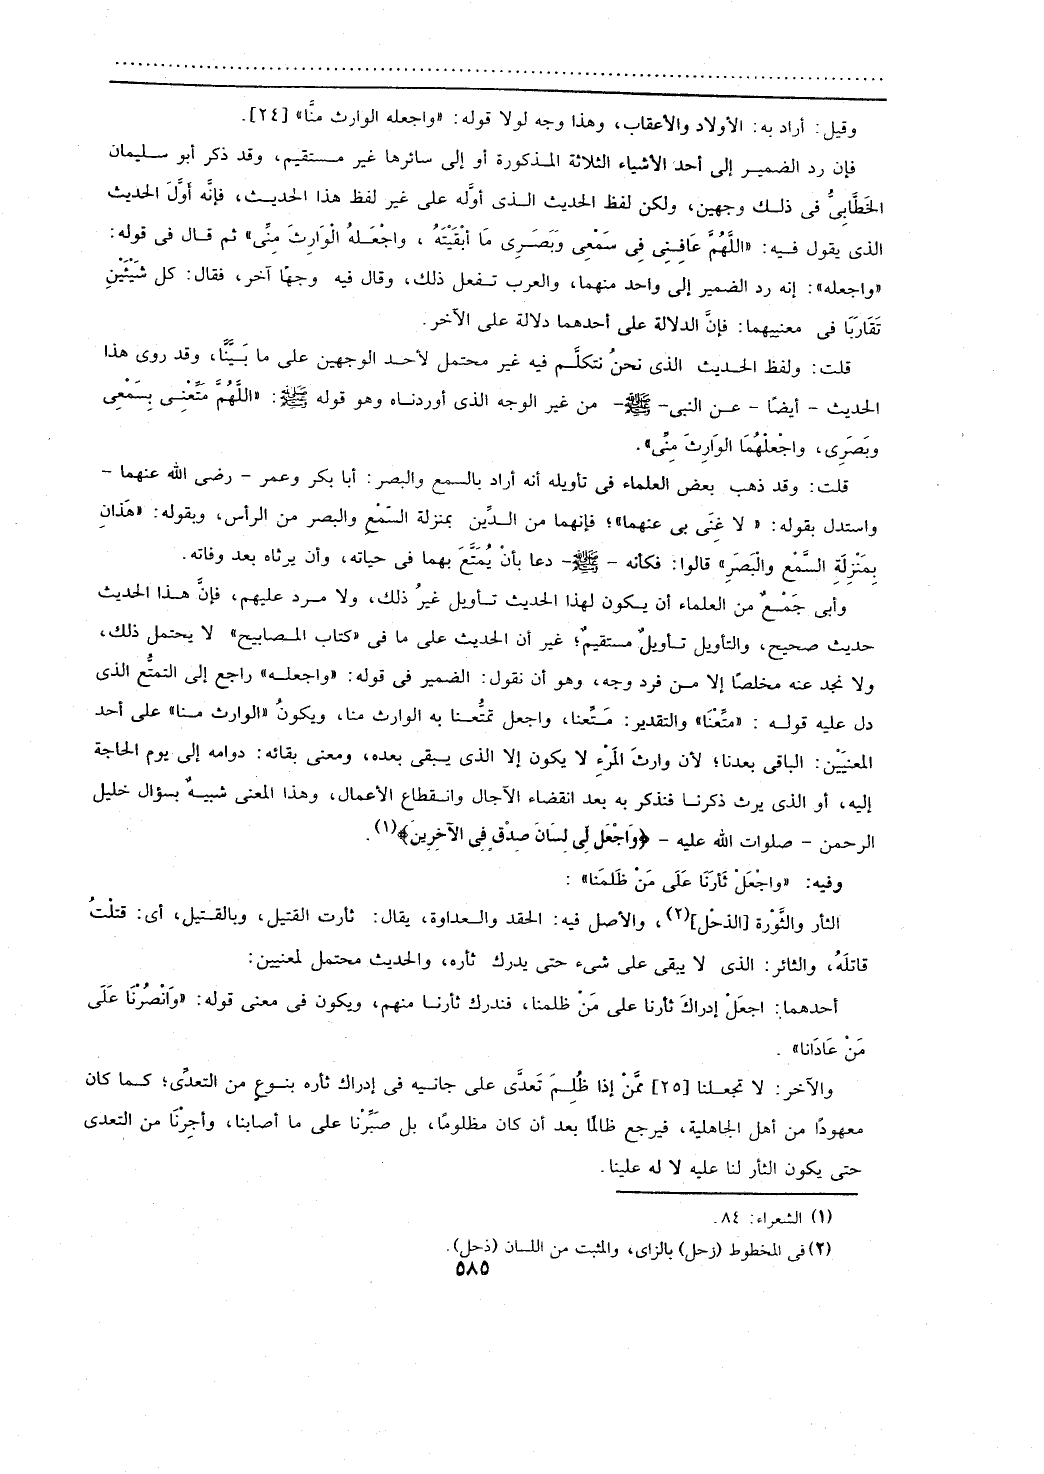 وقيل: أراد به: الأولاد والأعقاب، وهذا وجه لولا قوله: «واجعله الوارث منَّا» [٢٤].
فإن رد الضمير إلى أحد الأشياء الثلاثة المذكورة أو إلى سائرها غير مستقيم، وقد ذكر أبو سليمان
الخَطَّابِىُّ فى ذلك وجهين، ولكن لفظ الحديث الذى أوَّله على غير لفظ هذا الحديث، فإنَّه أوَّلَ الحديث
الذى يقول فيه: «اللَّهُمَّ عَافِنِى فِى سَمْعِى وَبَصَرِى مَا أَبْقَيْتَهُ، واجْعَلهُ الْوَارِثَ مِنِّى» ثم قال فى قوله:
«واجعله»: إنه رد الضمير إلى واحد منهما، والعرب تفعل ذلك، وقال فيه وجهًا آخر، فقال: كل شَيْئَيْنِ
تَقَارَبَا فى معنييهما: فإنَّ الدلالة على أحدهما دلالة على الآخر.
قلت: ولفظ الحديث الذى نحنُ نتكلَّم فيه غير محتمل لأحد الوجهين على ما بَيَّنَّا، وقد روى هذا
الحديث - أيضًا - عن النبى- ﷺ- من غير الوجه الذى أوردناه وهو قوله ﷺ: «اللَّهُمَّ مَتِّعْنِى بِسَمْعِى
وبَصَرِى، واجْعَلْهُمَا الوَارِثَ مِنِّى».
قلت: وقد ذهب بعض العلماء فى تأويله أنه أراد بالسمع والبصر: أبا بكر وعمر - رضى الله عنهما -
واستدل بقوله: « لا غِنَى بى عنهما»؛ فإنهما من الدِّين بمنزلة السَّمْعِ والبصر من الرأس، وبقوله: «هَذَانِ
بِمَنْزِلَةِ السَّمْعِ والْبَصَرِ» قالوا: فكأنه - ﷺ- دعا بأنْ يُمَتَّعَ بهما فى حياته، وأن يرثاه بعد وفاته.
وأبى جَمْعٌ من العلماء أن يكون لهذا الحديث تأويل غيرُ ذلك، ولا مرد عليهم، فإنَّ هذا الحديث
حديث صحيح، والتأويل تأويلٌ مستقيمٌ؛ غير أن الحديث على ما فى «كتاب المصابيح» لا يحتمل ذلك،
ولا نجد عنه مخلصًا إلا من فرد وجه، وهو أن نقول: الضمير فى قوله: «واجعله» راجع إلى التمتُّع الذى
دل عليه قوله : «متِّعْنَا» والتقدير: مَتِّعنا، واجعل تمتُّعنا به الوارث منا، ويكونُ «الوارث منا» على أحد
المعنيَيْن: الباقى بعدنا؛ لأن وارثَ المَرْءِ لا يكون إلا الذى يبقى بعده، ومعنى بقائه: دوامه إلى يوم الحاجة
إليه، أو الذى يرث ذكرنا فنذكر به بعد انقضاء الآجال وانقطاع الأعمال، وهذا المعنى شبيهٌ بسؤال خليل
الرحمن - صلوات الله عليه - ﴿وَاجْعَل لِّى لِسَانَ صِدْقٍ فِى الآخِرِينَ﴾(١).
وفيه: «واجْعَلْ ثَأرَنَا عَلَى مَنْ ظَلَمَنَا» :
الثأر والثَّؤرة [الذحْل](٢)، والأصل فيه: الحقد والعداوة، يقال: ثأرت القتيل، وبالقتيل، أى: قتلْتُ
قاتلَهُ، والثائر: الذى لا يبقى على شىء حتى يدرك ثأره، والحديث محتمل لمعنيين:
أحدهما: اجعَلْ إدراكَ ثأرنا على مَنْ ظلمنا، فندرك ثأرنا منهم، ويكون فى معنى قوله: «وَانْصُرْنَا عَلَى
مَنْ عَادَانا» .
والآخر: لا تجعلنا [٢٥] ممَّنْ إذا ظُلِمَ تَعدَّى على جانيه فى إدراك ثأره بنوعٍ من التعدِّى؛ كما كان
معهودًا من أهل الجاهلية، فيرجع ظالمًا بعد أن كان مظلومًا، بل صَبِّرْنا على ما أصابنا، وأجِرْنَا من التعدى
حتى يكون الثأر لنا عليه لا له علينا.
(١) الشعراء: ٨٤.
(٢) فى المخطوط (زحل) بالزاى، والمثبت من اللسان (ذحل).
٥٨٥